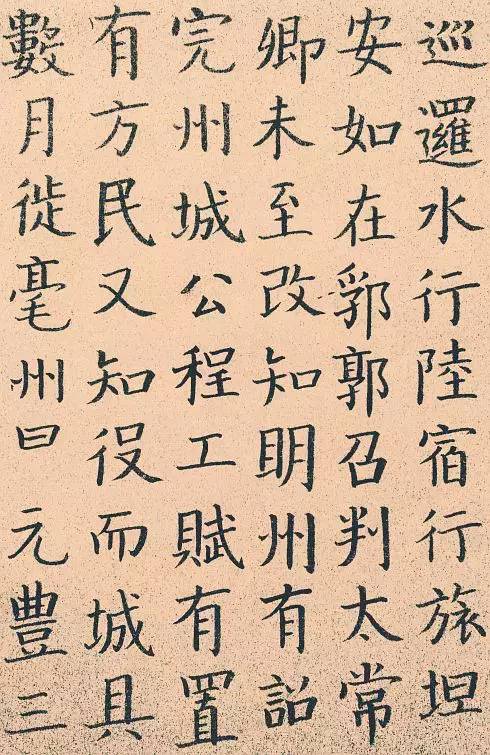 巡邏水行陸宿行旅坦
安如在郛郭召判太常
卿未至改知明州有詔
完州城公程工賦有置
有方民又知役而城具
數月徙亳州曰元豐三